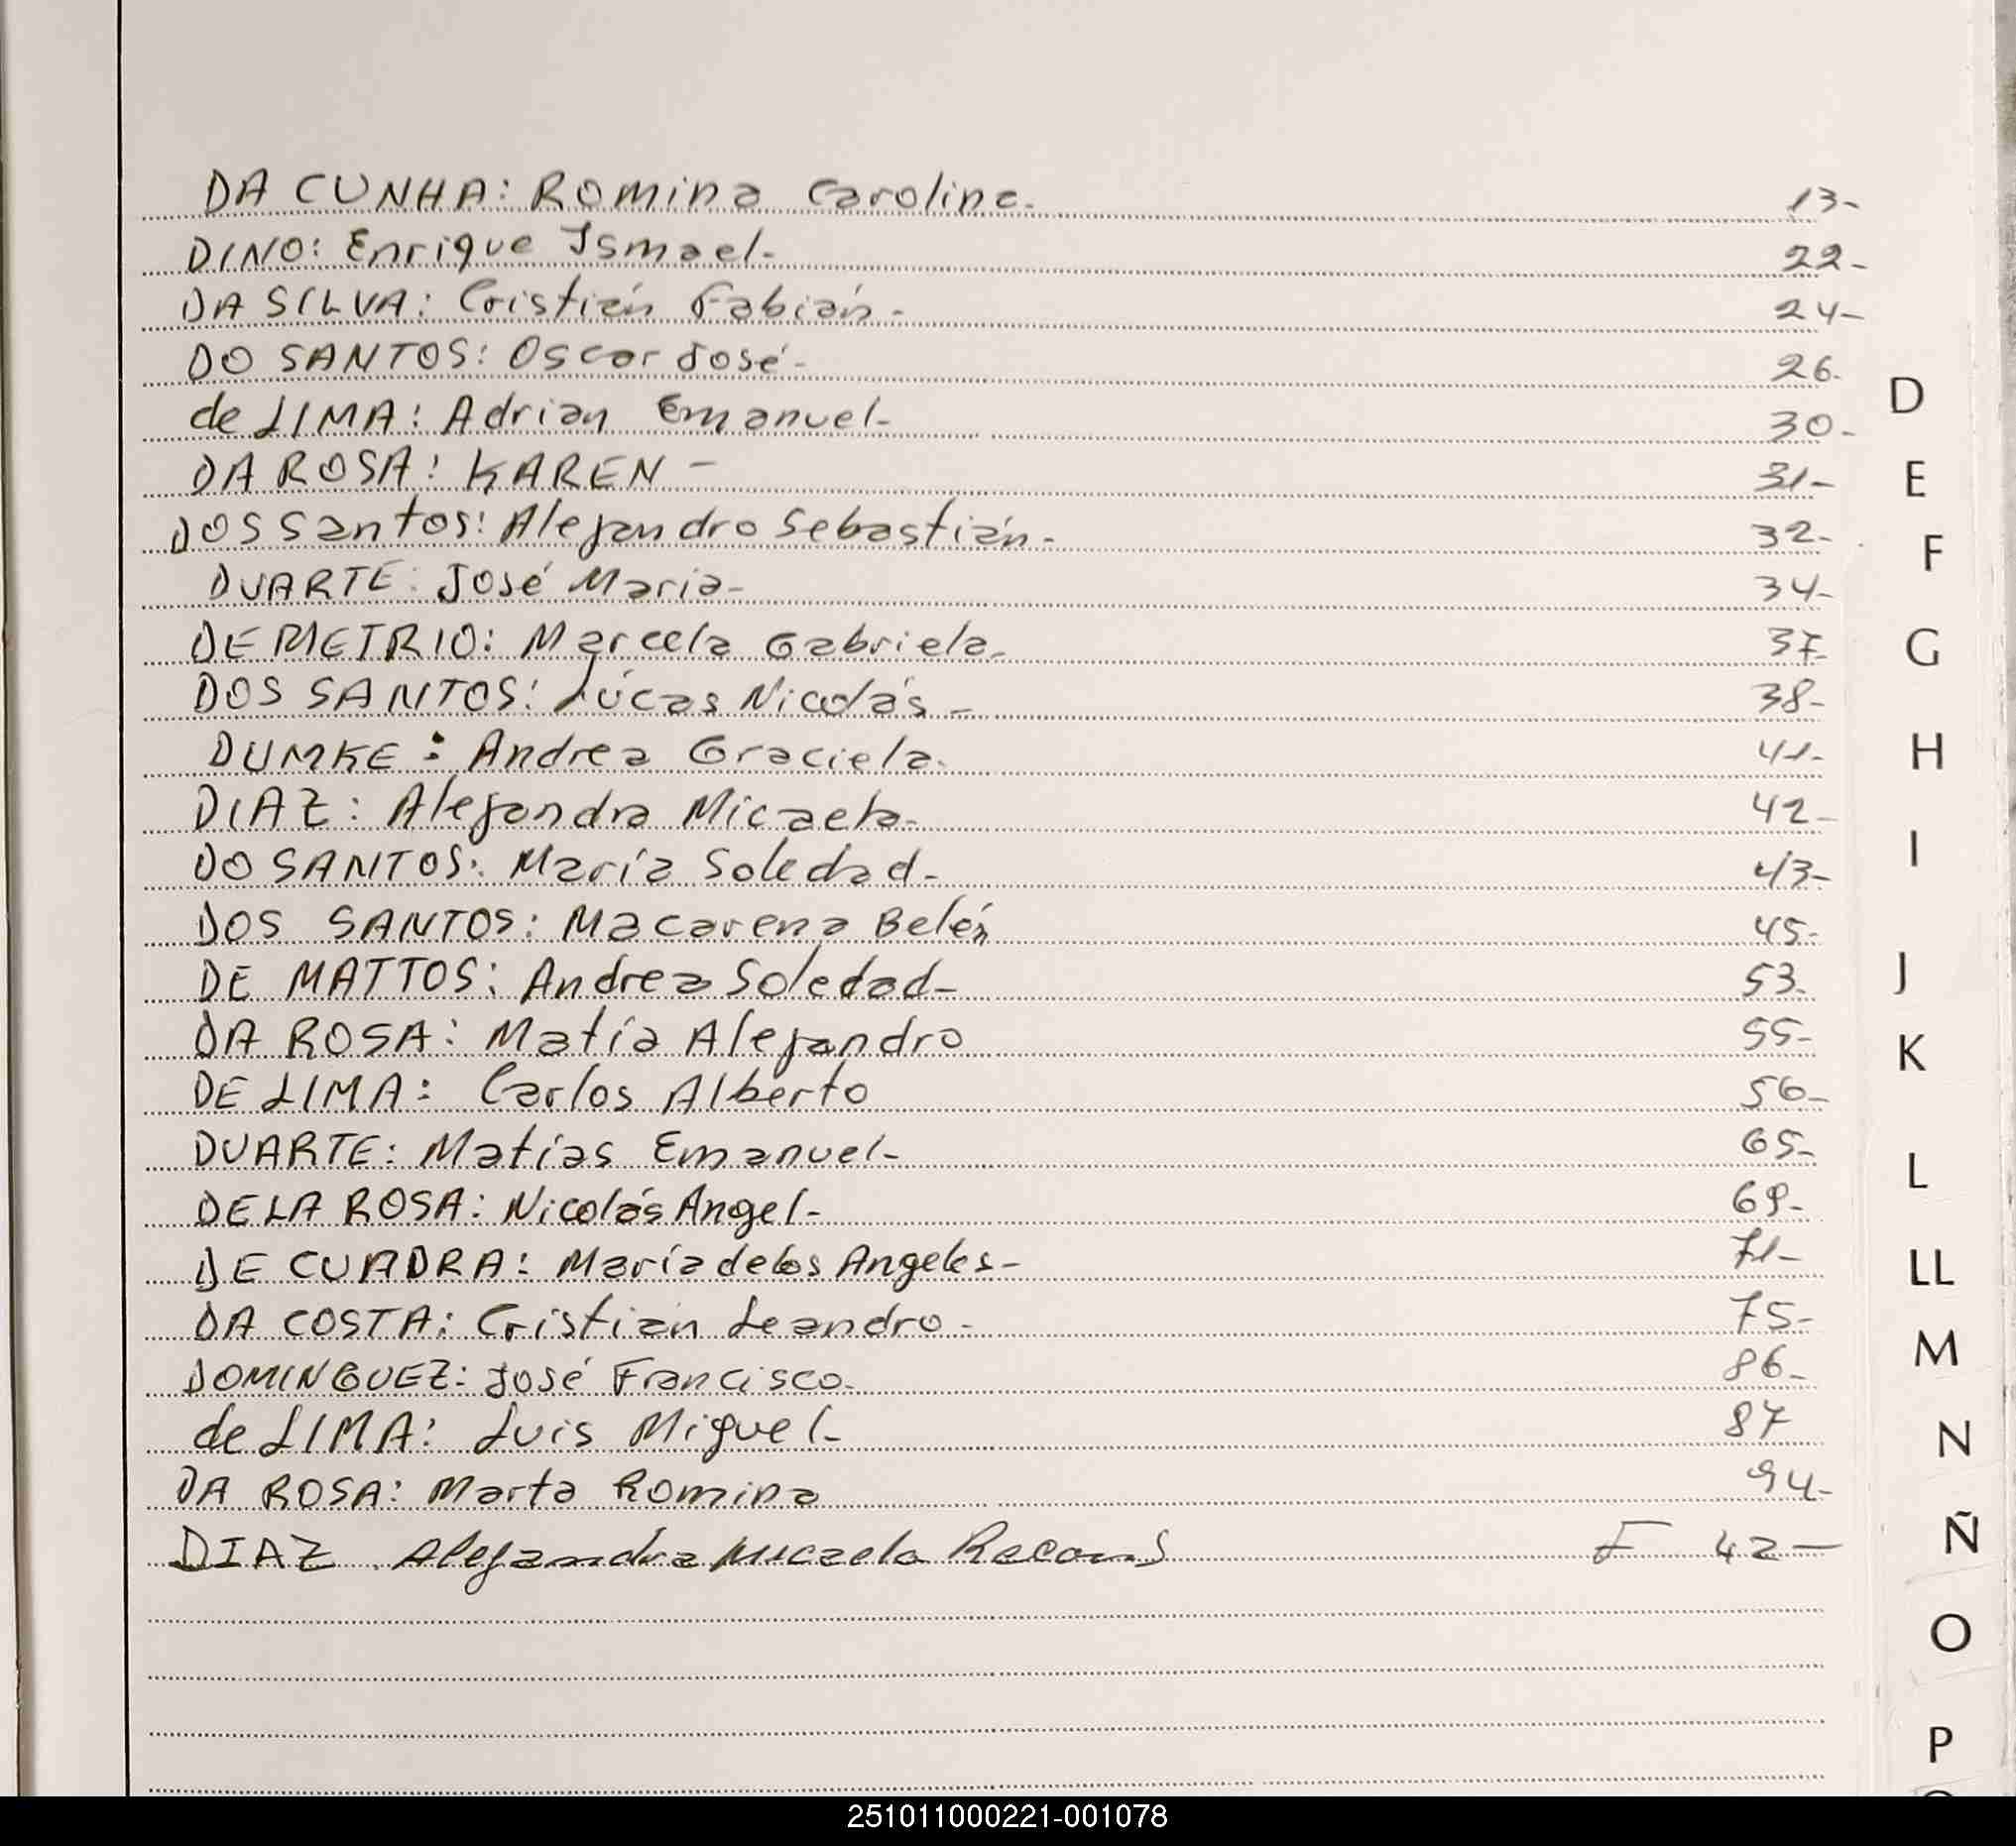 DA CUNHA: Romina Carolina. 13-
DINO: Enrique Ismael- 22-
DA SILVA: Cristián Fabián- 24-
DO SANTOS: Oscar José- 26-
de LIMA: Adrian Emanuel- 30-
DA ROSA: KAREN- 31-
DOS Santos: Alejandro Sebastián- 32-
DUARTE: José Maria- 34-
DEMETRIO: Marcela Gabriela- 37-
DOS SANTOS: Lúcas Nicolás- 38-
DUMKE: Andrea Graciela- 41-
DIAZ: Alejandra Micaela- 42-
DO SANTOS: María Soledad- 43-
DOS SANTOS: Macarena Belén 45-
DE MATTOS: Andrea Soledad- 53-
DA ROSA: Matía Alejandro 55-
DE LIMA: Carlos Alberto 56-
DUARTE: Matías Emanuel- 65-
DE LA ROSA: Nicolás Angel- 69-
DE CUADRA: María de los Angeles- 71-
DA COSTA: Cristián Leandro- 75-
DOMINGUEZ: José Francisco- 86-
de LIMA: Luis Miguel- 87
DA ROSA: Marta Romina 94-
DIAZ Alejandra Micaela F 42-
D
E
F
G
H
I
J
K
L
LL
M
N
Ñ
O
P
251011000221-001078